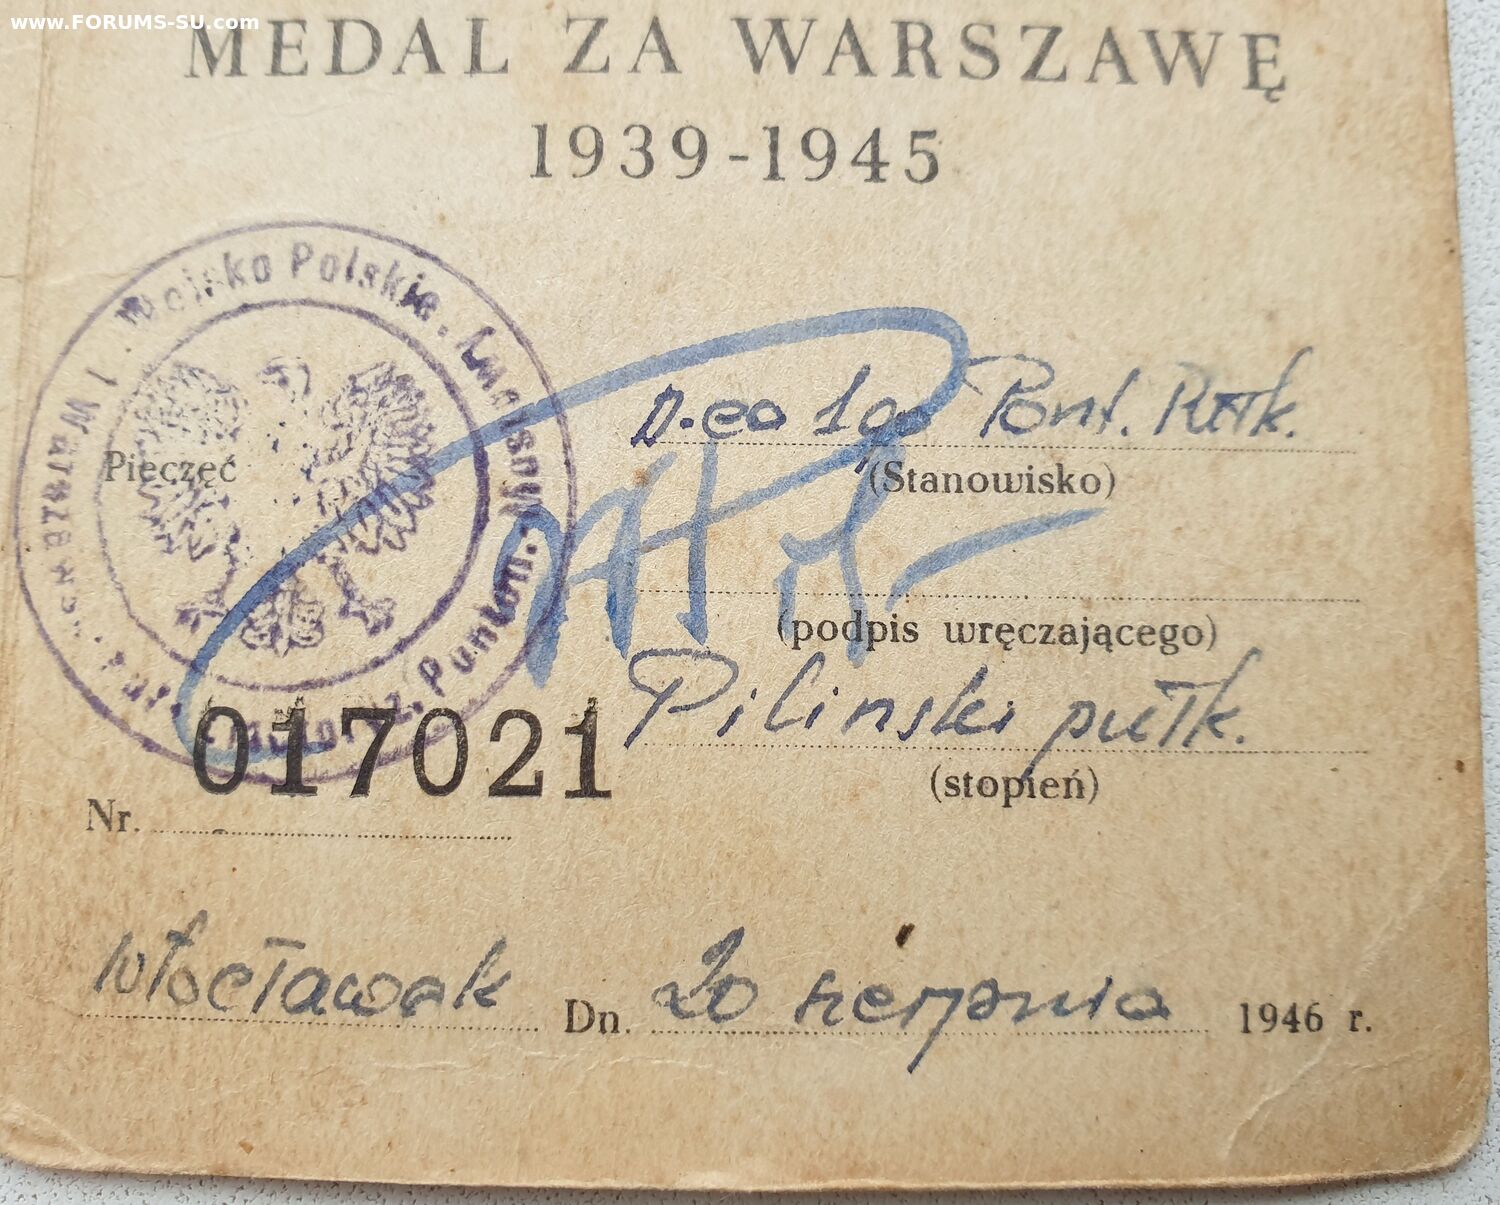 www.FORUMS-SU.com
MEDAL ZA WARSZAWĘ
1939-1945
Wojsko Polskie.
Pieczęć
D-co 1go Pont. Pułk.
(Stanowisko)
(podpis wręczającego)
Pilinski pułk.
(stopień)
017021
Nr.
Włocławek Dn. 20 sierpnia 1946 r.